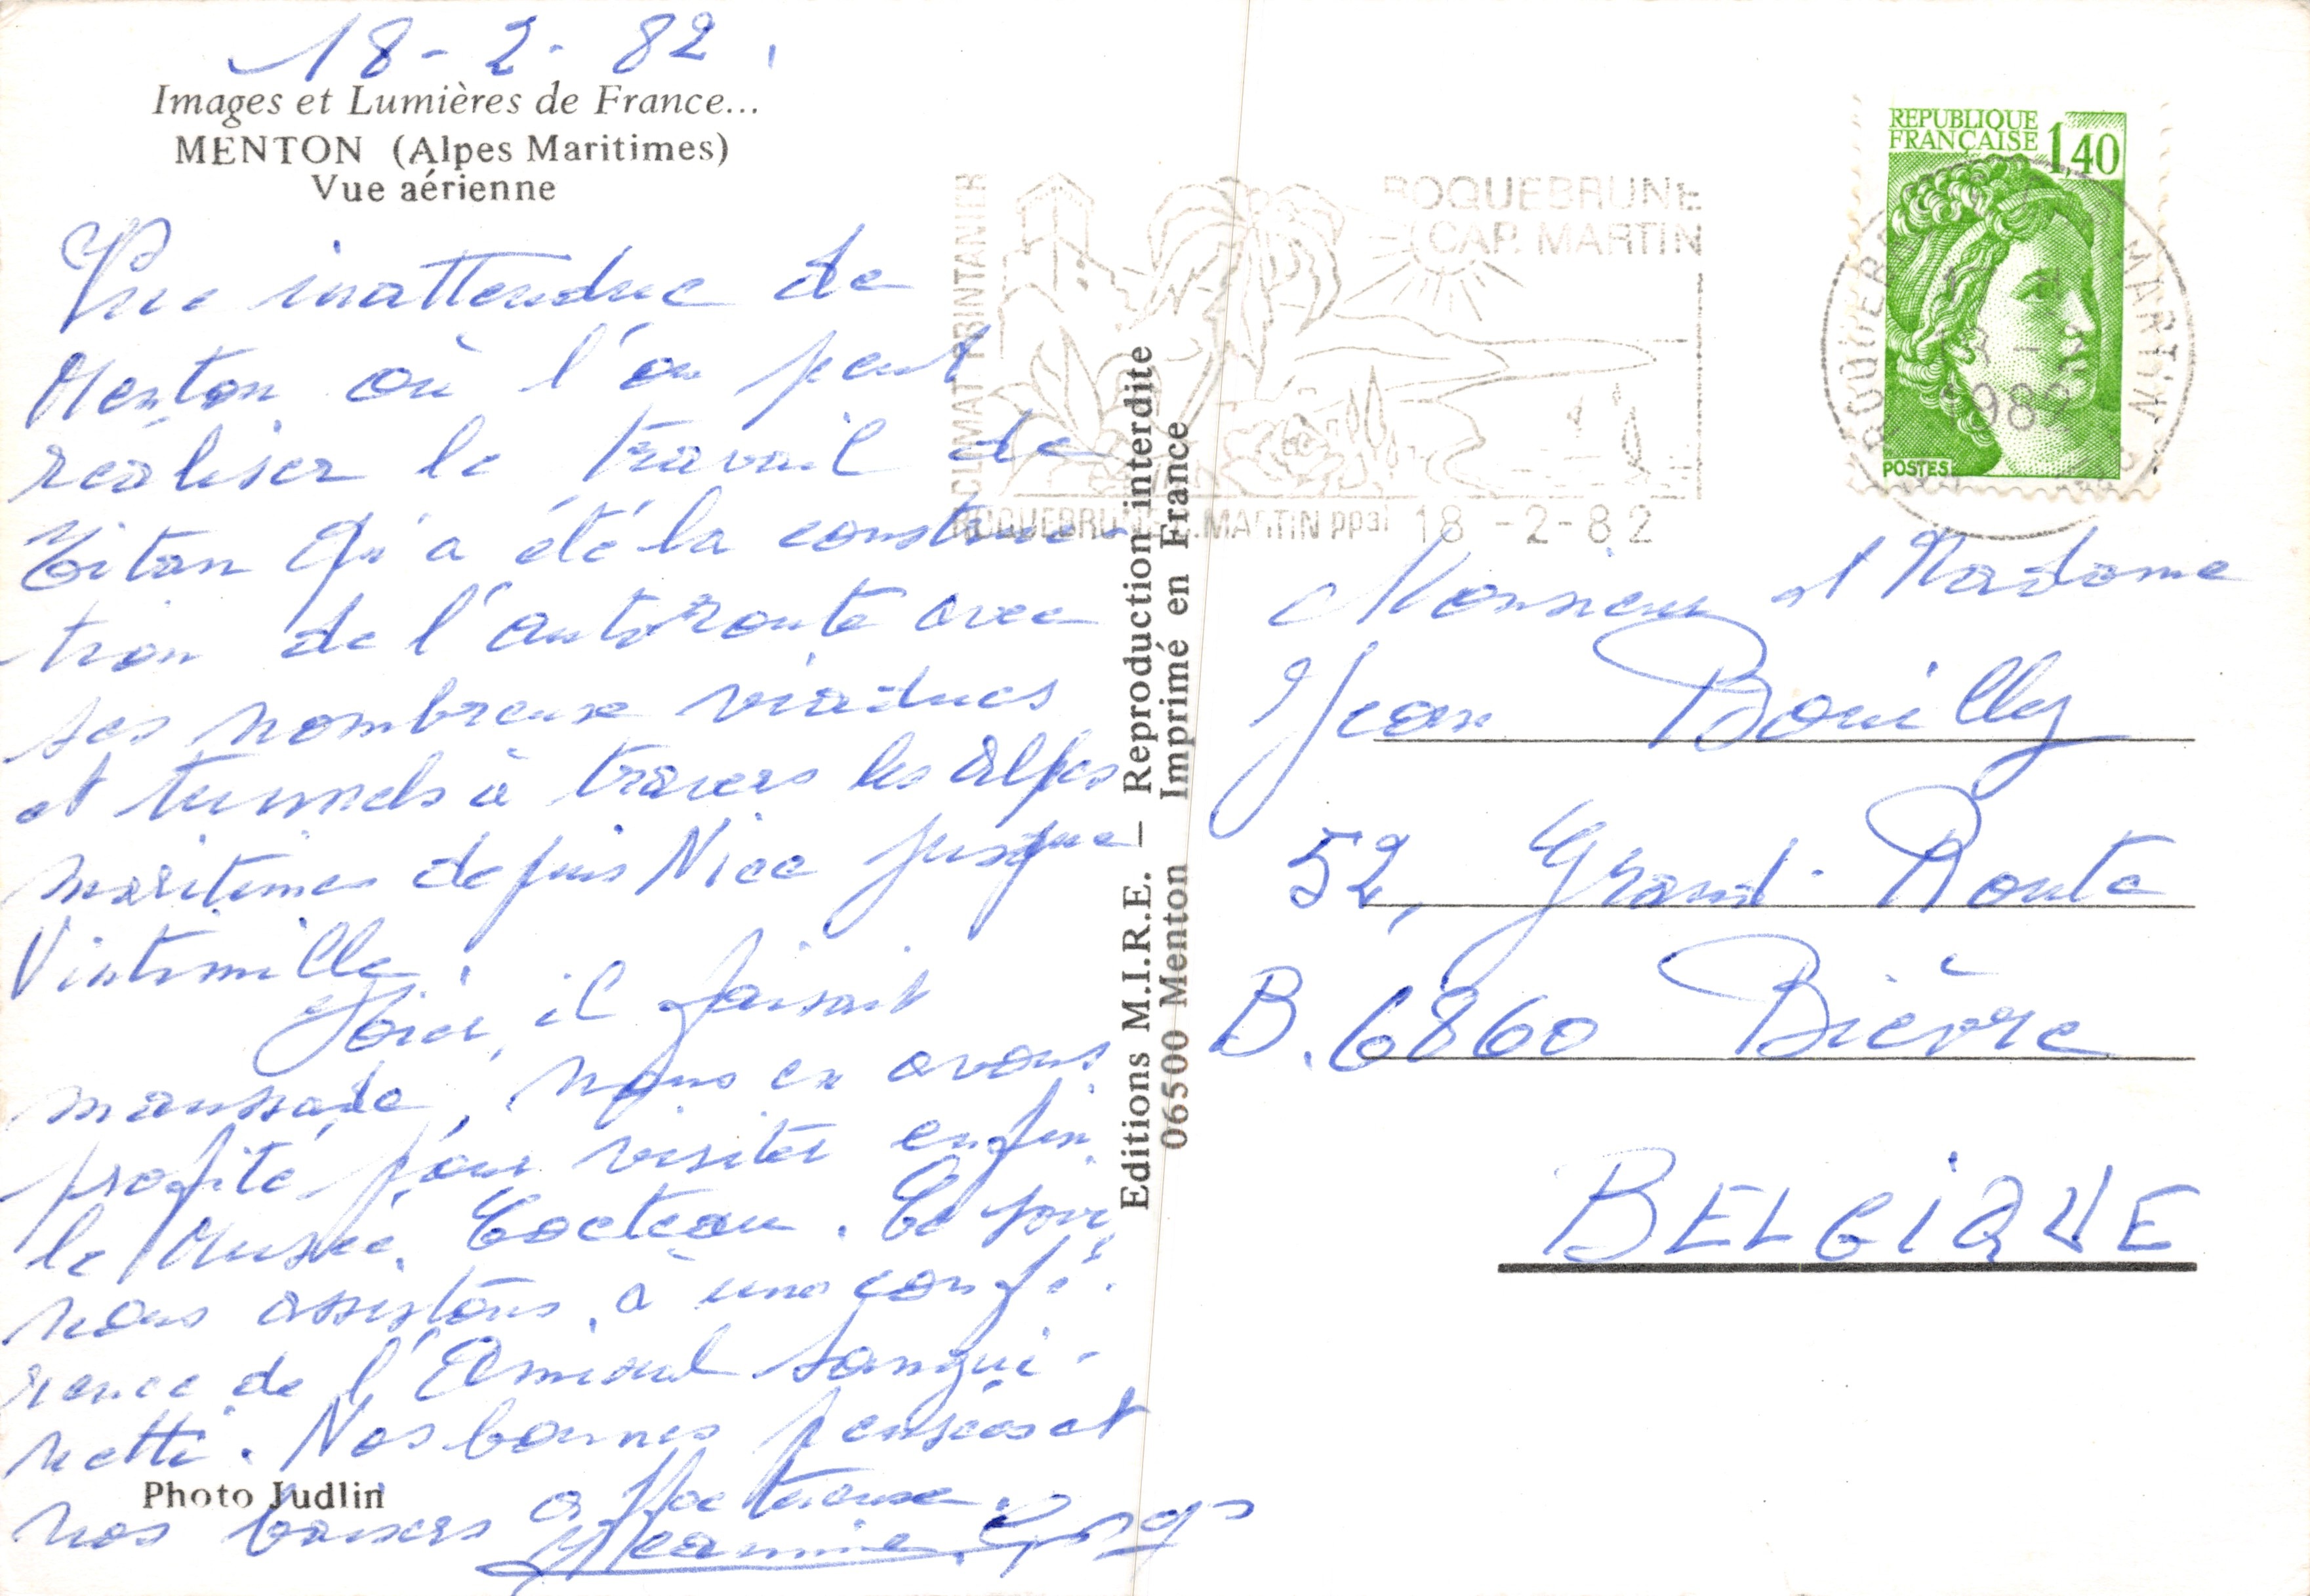 18-2-82.
Images et Lumières de France...
MENTON (Alpes Maritimes)
Vue aérienne
Vue inattendue de
Menton où l'on peut
réaliser le travail de
Titan qu'a été la construc-
tion de l'autoroute avec
ses nombreux viaducs
et tunnels à travers les Alpes
maritimes depuis Nice jusque
Vintimille.
Hier, il faisait
maussade, nous en avons
profité pour visiter enfin
le Musée Cocteau. Ce soir,
nous assistons à une confé-
rence de l'Amiral Sangui-
netti. Nos bonnes pensées et
Photo Judlin
nos baisers affectueux.
Jeannine
Editions M.I.R.E. — Reproduction interdite
06500 Menton Imprimé en France
CLIMAT PRINTANIER
ROQUEBRUNE
CAP MARTIN
ROQUEBRUNE C.MARTIN ppal 18 -2-82
REPUBLIQUE
FRANÇAISE
1,40
POSTES
1982
Monsieur et Madame
Jean Bouilly
52, Grand-Route
B.6860 Bièvre
BELGIQUE